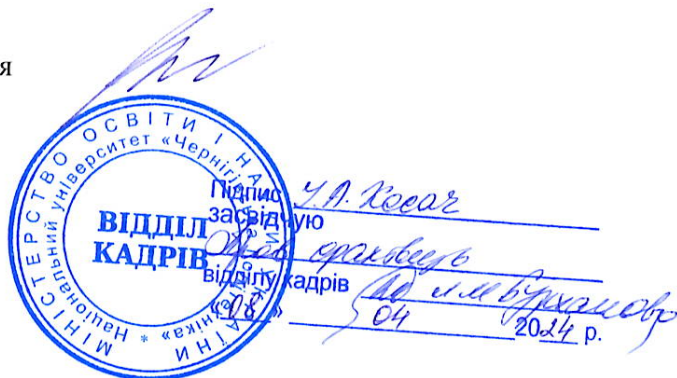 я
МІНІСТЕРСТВО ОСВІТИ І НАУКИ УКРАЇНИ
* Національний університет «Чернігівська політехніка»
ВІДДІЛ
КАДРІВ
Підпис
засвідчую
відділу кадрів
«08» 04 2024 р.